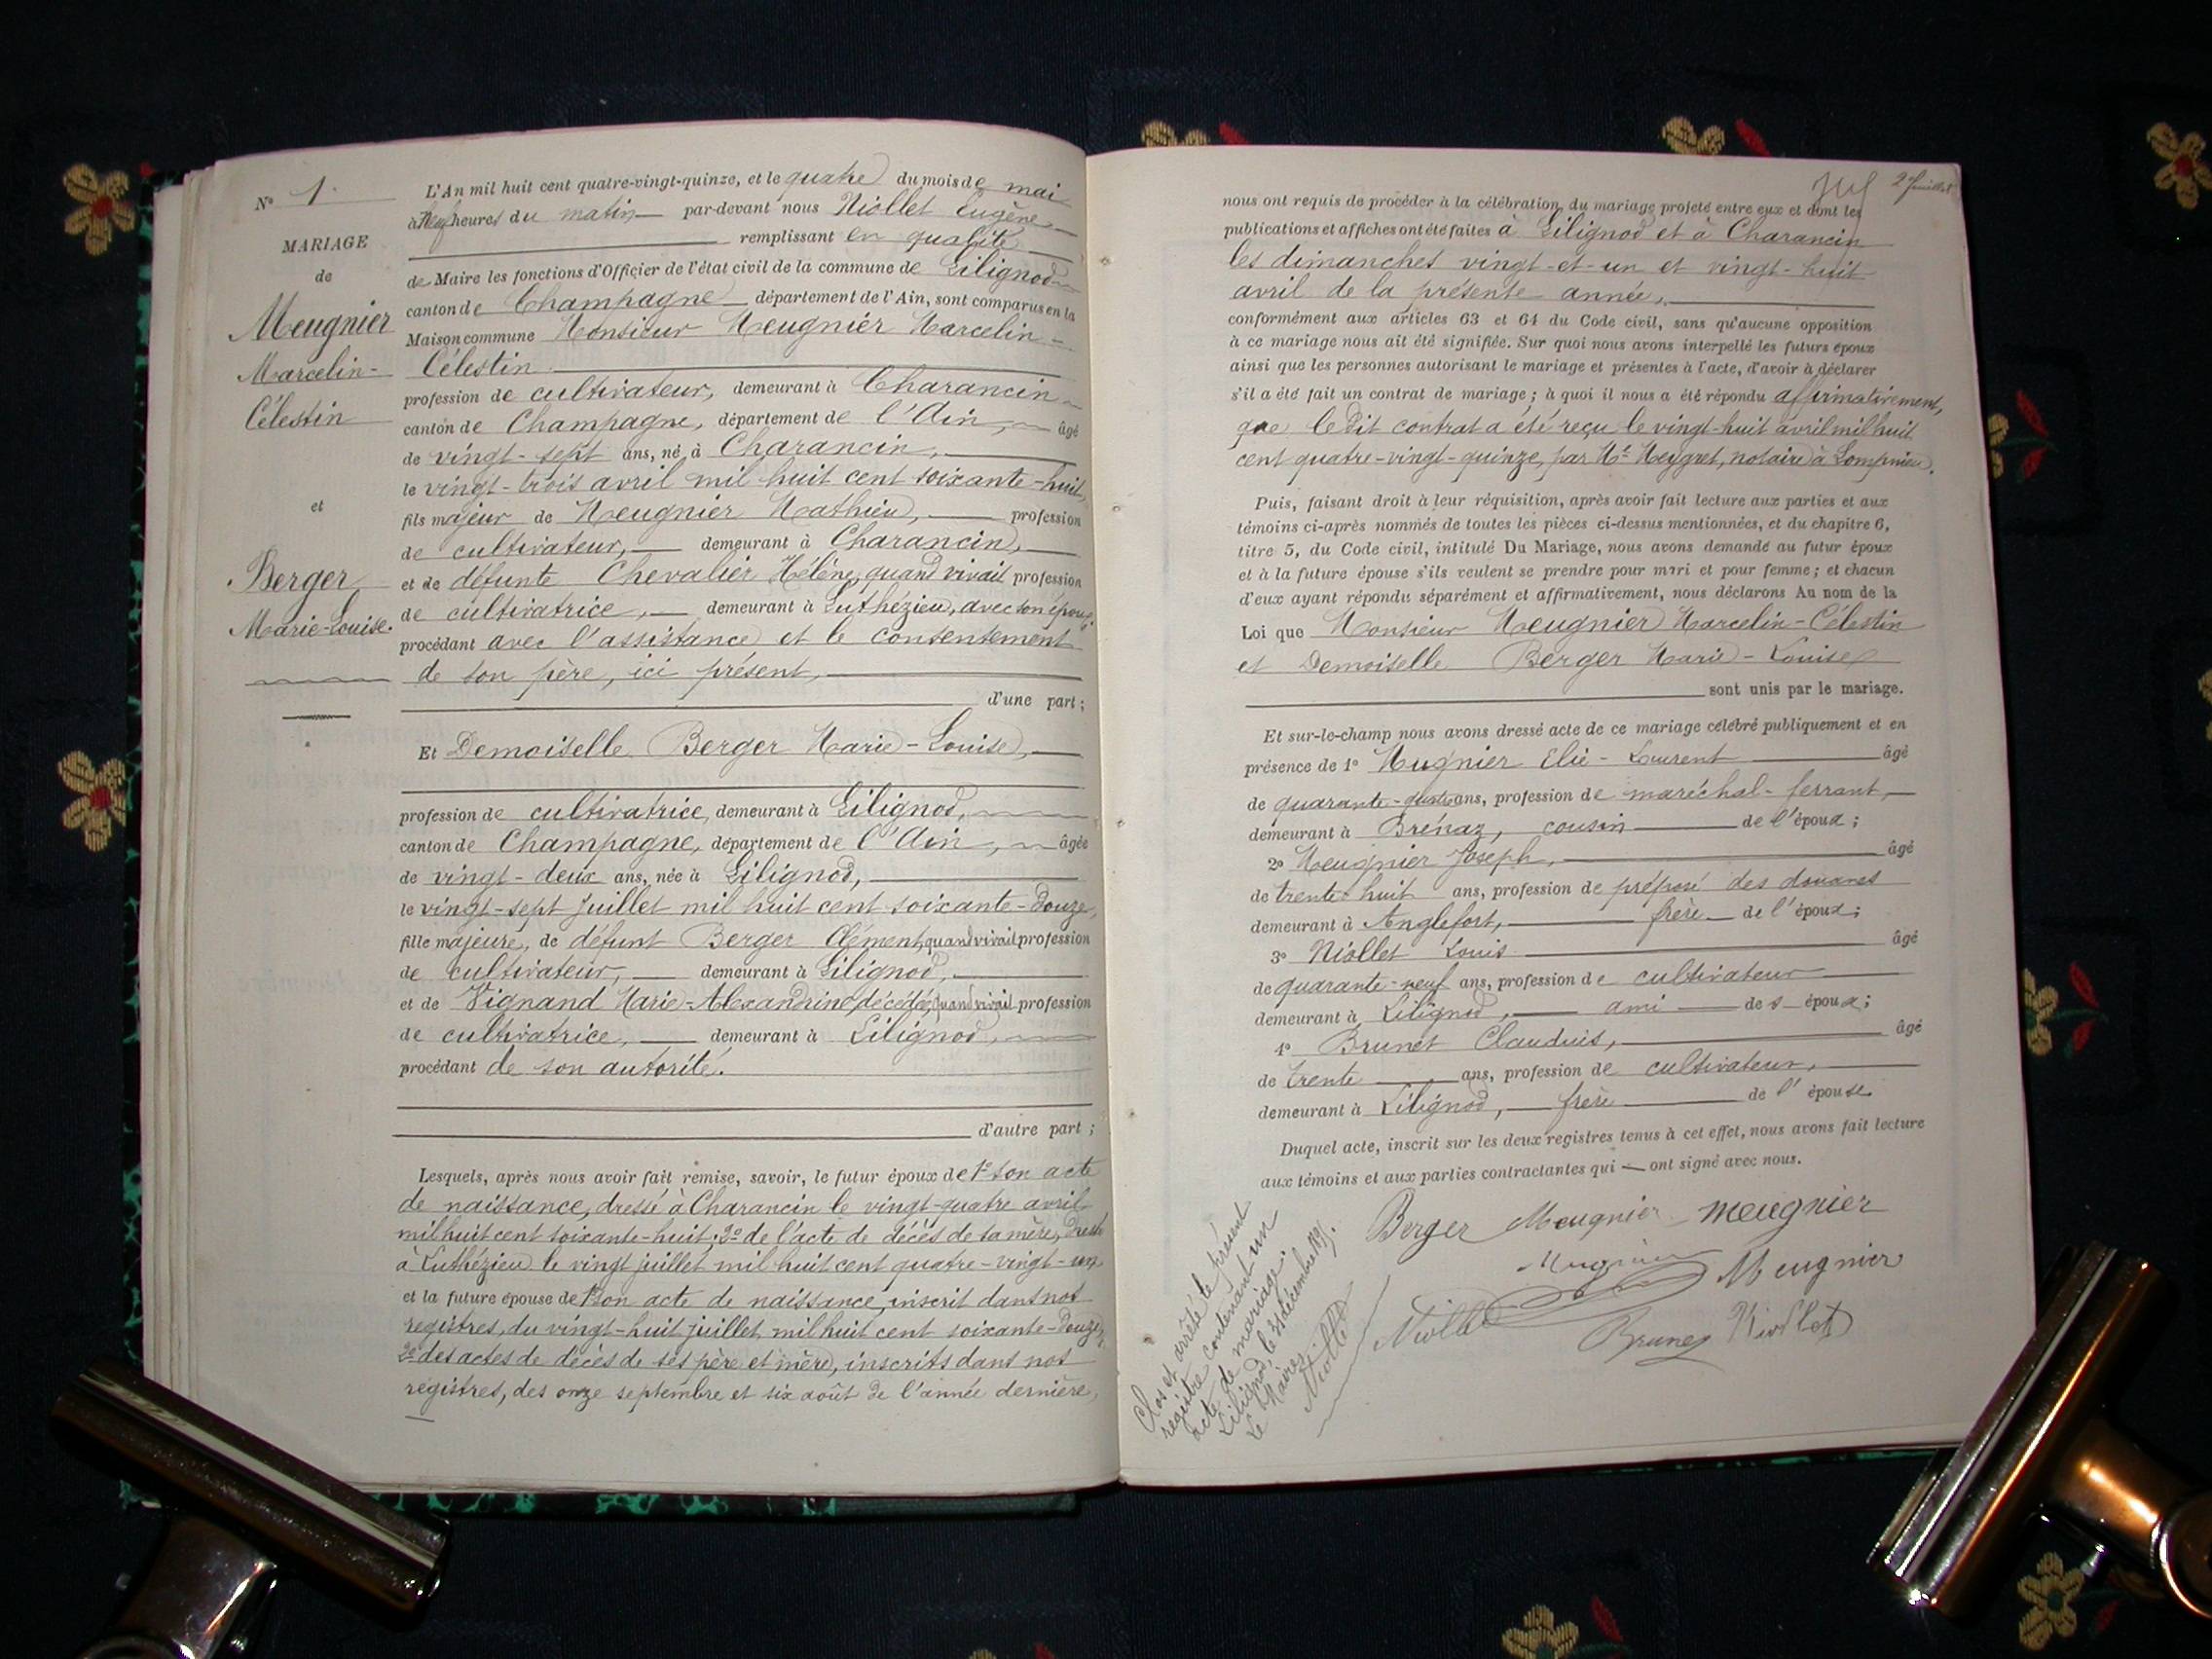 N° 1.
MARIAGE
de
Meugnier
Marcelin-
Célestin
et
Berger
Marie-Louise.
L'An mil huit cent quatre-vingt-quinze, et le quatre du mois de mai
à Neuf heures du matin par-devant nous Niollet Eugène
remplissant en qualité
de Maire les fonctions d'Officier de l'état civil de la commune de Lilignod
canton de Champagne département de l'Ain, sont comparus en la
Maison commune Monsieur Meugnier Marcelin-
Célestin
profession de cultivateur, demeurant à Charancin
canton de Champagne, département de l'Ain, âgé
de vingt-sept ans, né à Charancin,
le vingt-trois avril mil huit cent soixante-huit,
fils majeur de Meugnier Mathieu, profession
de cultivateur, demeurant à Charancin,
et de défunte Chevalier Hélène, quand vivait profession
de cultivatrice, demeurant à Luthézieu, avec son époux,
procédant avec l'assistance et le consentement
de son père, ici présent,
d'une part;
Et Demoiselle Berger Marie-Louise,
profession de cultivatrice, demeurant à Lilignod,
canton de Champagne, département de l'Ain, âgée
de vingt-deux ans, née à Lilignod,
le vingt-sept juillet mil huit cent soixante-douze,
fille majeure, de défunt Berger Clément, quand vivait profession
de cultivateur, demeurant à Lilignod,
et de Vignand Marie-Alexandrine, décédée, quand vivait profession
de cultivatrice, demeurant à Lilignod,
procédant de son autorité.
d'autre part;
Lesquels, après nous avoir fait remise, savoir, le futur époux de 1° son acte
de naissance, dressé à Charancin le vingt-quatre avril
mil huit cent soixante-huit; 2° de l'acte de décès de sa mère, dressé
à Luthézieu le vingt juillet mil huit cent quatre-vingt-un,
et la future épouse de 1° son acte de naissance, inscrit dans nos
registres, du vingt-huit juillet mil huit cent soixante-douze,
2° des actes de décès de ses père et mère, inscrits dans nos
registres, des onze septembre et six août de l'année dernière,
2e feuillet
nous ont requis de procéder à la célébration du mariage projeté entre eux et dont les
publications et affiches ont été faites à Lilignod et à Charancin
les dimanches vingt-et-un et vingt-huit
avril de la présente année,
conformément aux articles 63 et 64 du Code civil, sans qu'aucune opposition
à ce mariage nous ait été signifiée. Sur quoi nous avons interpellé les futurs époux
ainsi que les personnes autorisant le mariage et présentes à l'acte, d'avoir à déclarer
s'il a été fait un contrat de mariage; à quoi il nous a été répondu affirmativement,
que le dit contrat a été reçu le vingt-huit avril mil huit
cent quatre-vingt-quinze, par Me Meygret, notaire à Lompnieu.
Puis, faisant droit à leur réquisition, après avoir fait lecture aux parties et aux
témoins ci-après nommés de toutes les pièces ci-dessus mentionnées, et du chapitre 6,
titre 5, du Code civil, intitulé Du Mariage, nous avons demandé au futur époux
et à la future épouse s'ils veulent se prendre pour mari et pour femme; et chacun
d'eux ayant répondu séparément et affirmativement, nous déclarons Au nom de la
Loi que Monsieur Meugnier Marcelin-Célestin
et Demoiselle Berger Marie-Louise
sont unis par le mariage.
Et sur-le-champ nous avons dressé acte de ce mariage célébré publiquement et en
présence de 1° Mugnier Elie-Laurent âgé
de quarante-quatre ans, profession de maréchal-ferrant,
demeurant à Brénaz, cousin de l'époux;
2° Meugnier Joseph, âgé
de trente huit ans, profession de préposé des douanes
demeurant à Anglefort, frère de l'époux;
3° Niollet Louis âgé
de quarante-neuf ans, profession de cultivateur
demeurant à Lilignod, ami des époux;
4° Brunet Claudius, âgé
de trente ans, profession de cultivateur,
demeurant à Lilignod, frère de l'épouse
Duquel acte, inscrit sur les deux registres tenus à cet effet, nous avons fait lecture
aux témoins et aux parties contractantes qui ont signé avec nous.
Berger Meugnier Meugnier
Mugnier Meugnier
Niollet Brunet Niollet
Clos et arrêté le présent
registre contenant un
acte de mariage.
Lilignod, le 31 décembre 1895.
Le Maire,
Niollet